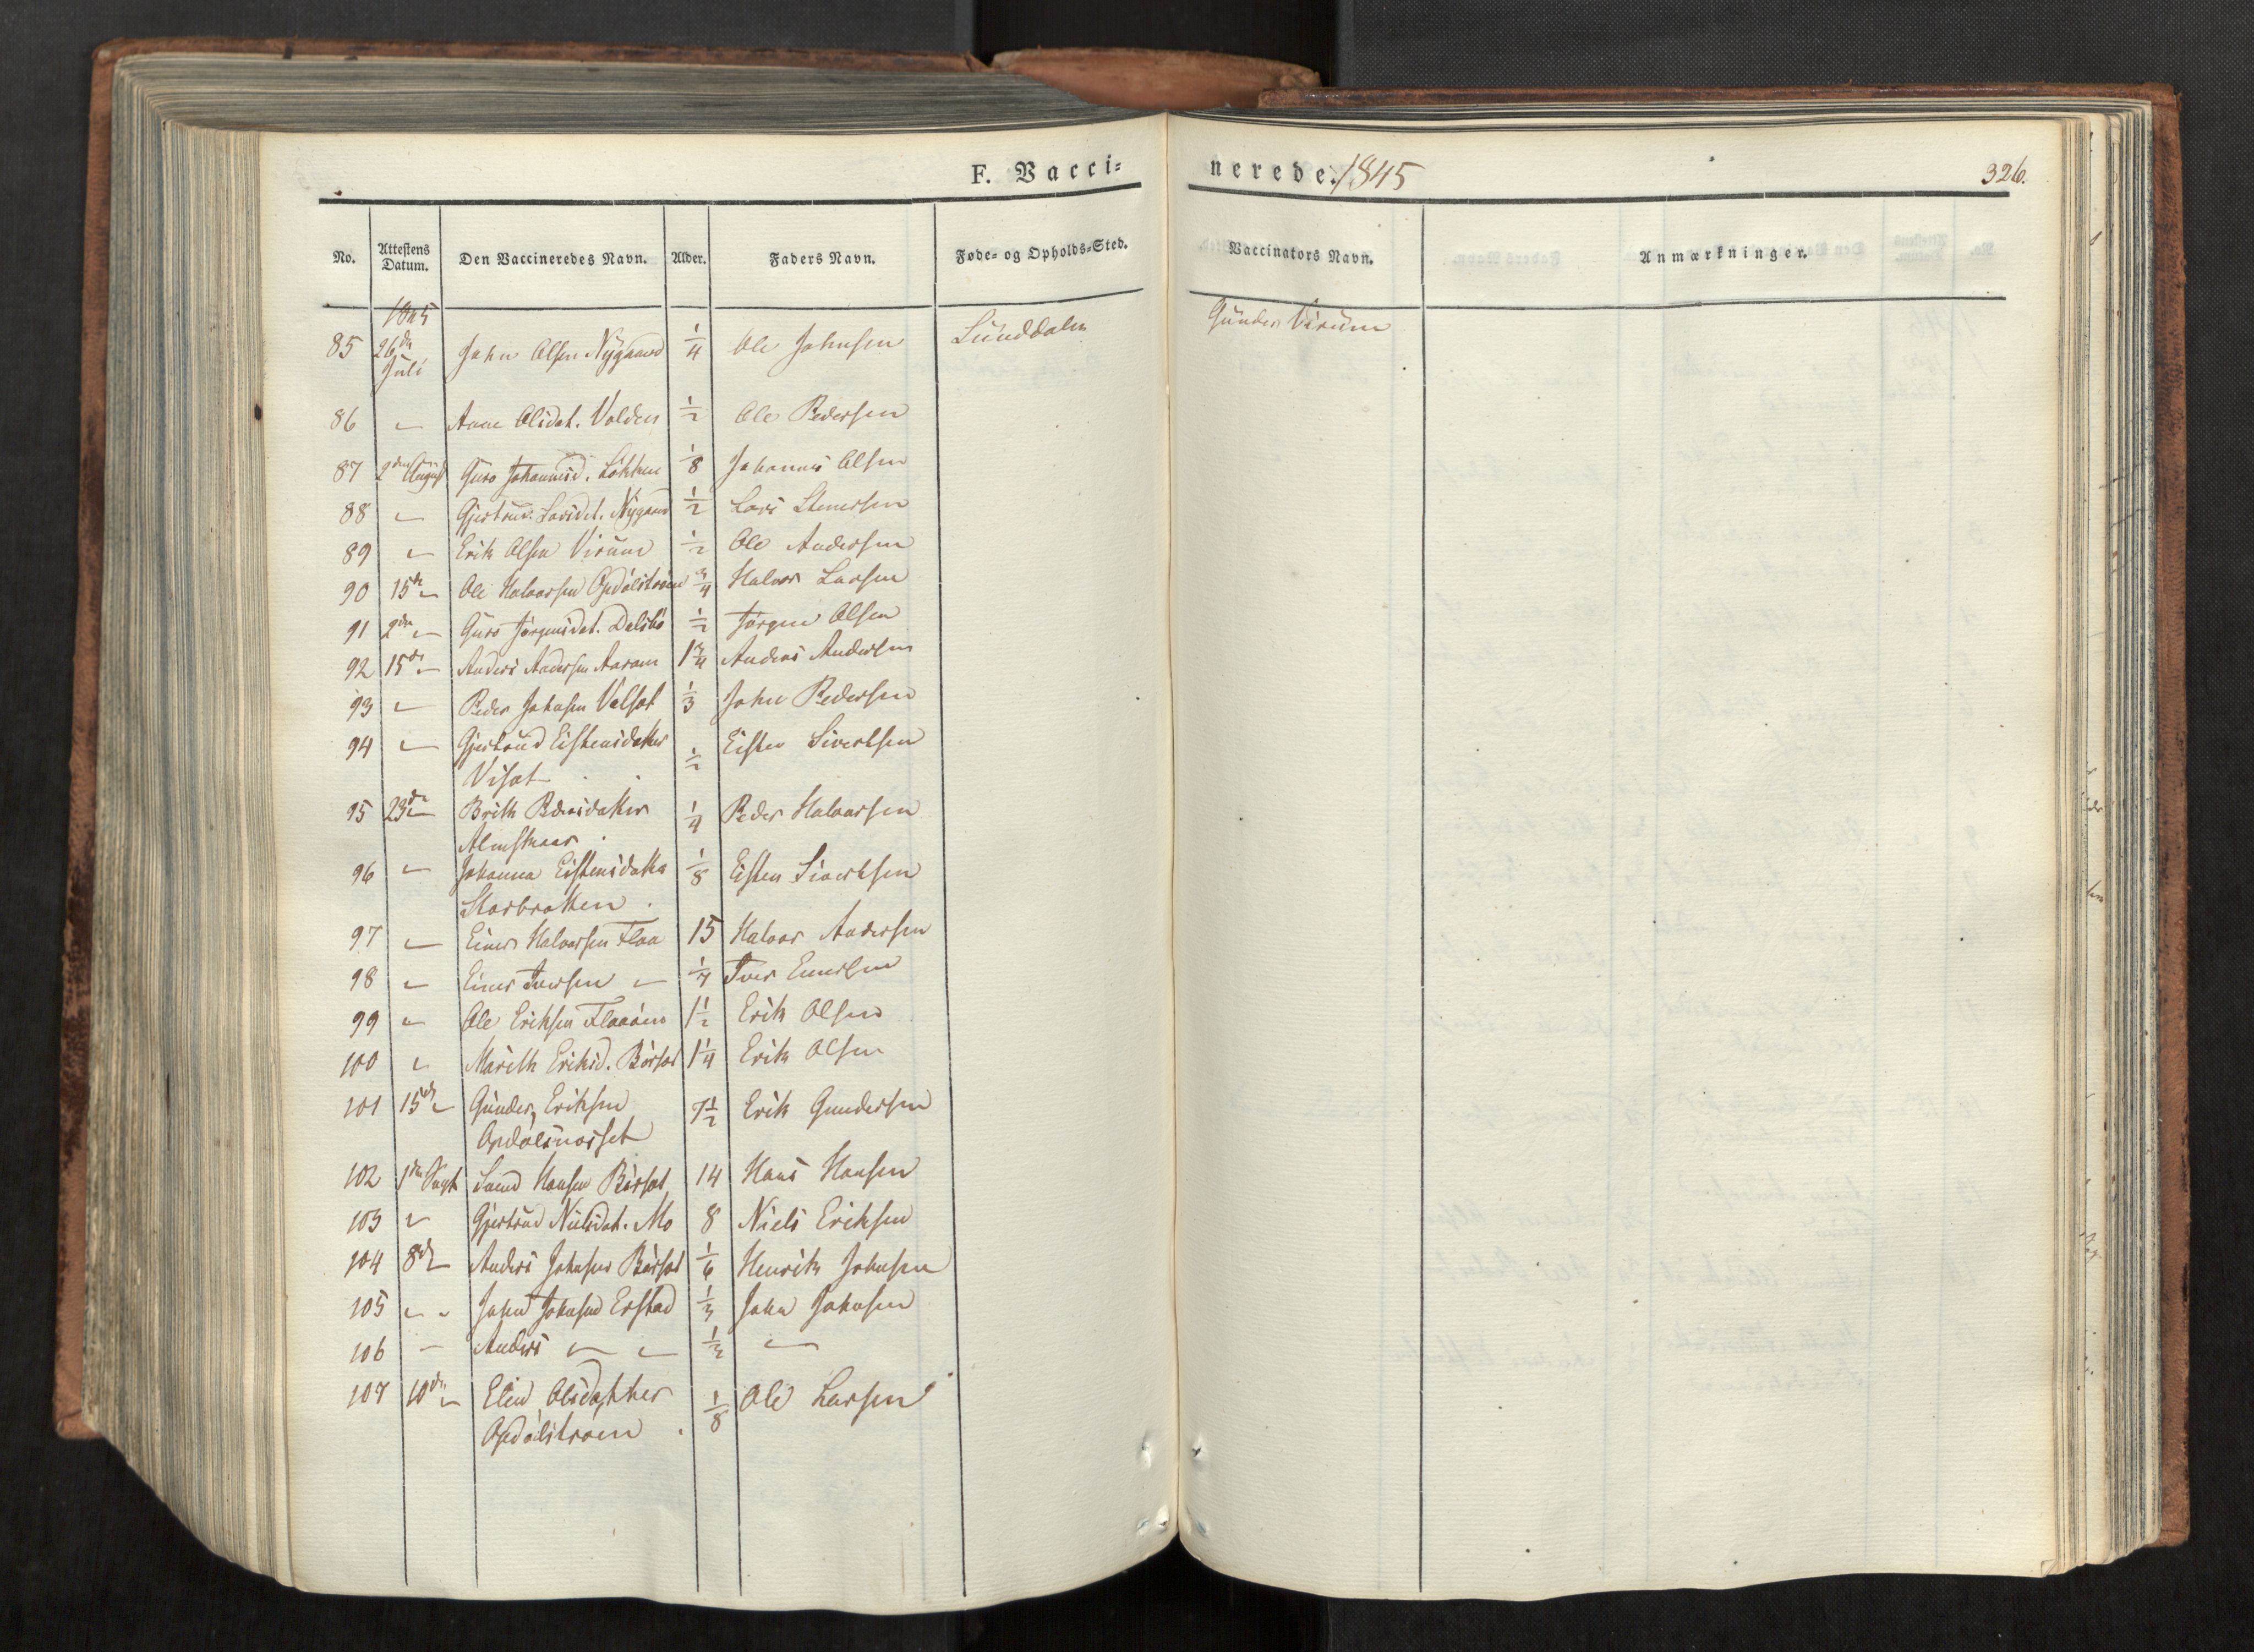 F. Vacci=
nerede. 1845
326.
No. Attestens Datum. Den Vaccineredes Navn. Alder. Faders Navn. Føde= og Opholds=Sted. Vaccinators Navn. Anmærkninger.
1845
85 26de Juli John Olsen Nÿgaard 1/4 Ole Johnsen Sunddalen Gunder Virum
86 " Anne Olsdat. Volden 1/2 Ole Pedersen
87 2den August Guro Johannisd. Løkken 1/8 Johannis Olsen
88 " Gjertrud Larsdt. Nÿgaard 1/2 Lars Stenersen
89 " Erik Olsen Virum 1/2 Ole Andersen
90 15de " Ole Halvorsen Opdølstrøen 3/4 Halvor Larsen
91 2den " Guro Jørgensdat. Delibø 1/2 Jørgen Olsen
92 15de " Anders Andersen 1 3/4 Anders Andersen
93 " Peder Johnsen 1/3 John Pedersen
94 " Gjertrud Eistensdatter 1/2 Eisten Sivertsen
95 23de " Brith Pedersdatter 1/4 Peder Halvorsen
Almskaar
96 " Johanna Eistensdatter 1/8 Eisten Sivertsen
Storbrotten
97 " Einer Halvorsen Flaa 15 Halvor Andersen
98 " Einer Iversen " Iver Einersen
99 " Ole Eriksen Flaaøien 1 1/2 Erik Olsen
100 " Marith Eriksd. 1 1/4 Erik Olsen
101 15de " Gunder Eriksen 7 1/2 Erik Gundersen
Opdølsnæsset
102 1ste Hansen 14 Hans Hansen
103 " Gjertrud Nielsdat. Mo 8 Niels Eriksen
104 8de " Anders Johnsen 1/6 Henrik Johnsen
105 " " John Johnsen Erstad 1/3 John Johnsen
106 " Anders " " "
107 10de " Elen Olsdatter 1/8 Ole Larsen
Opdølstrøen